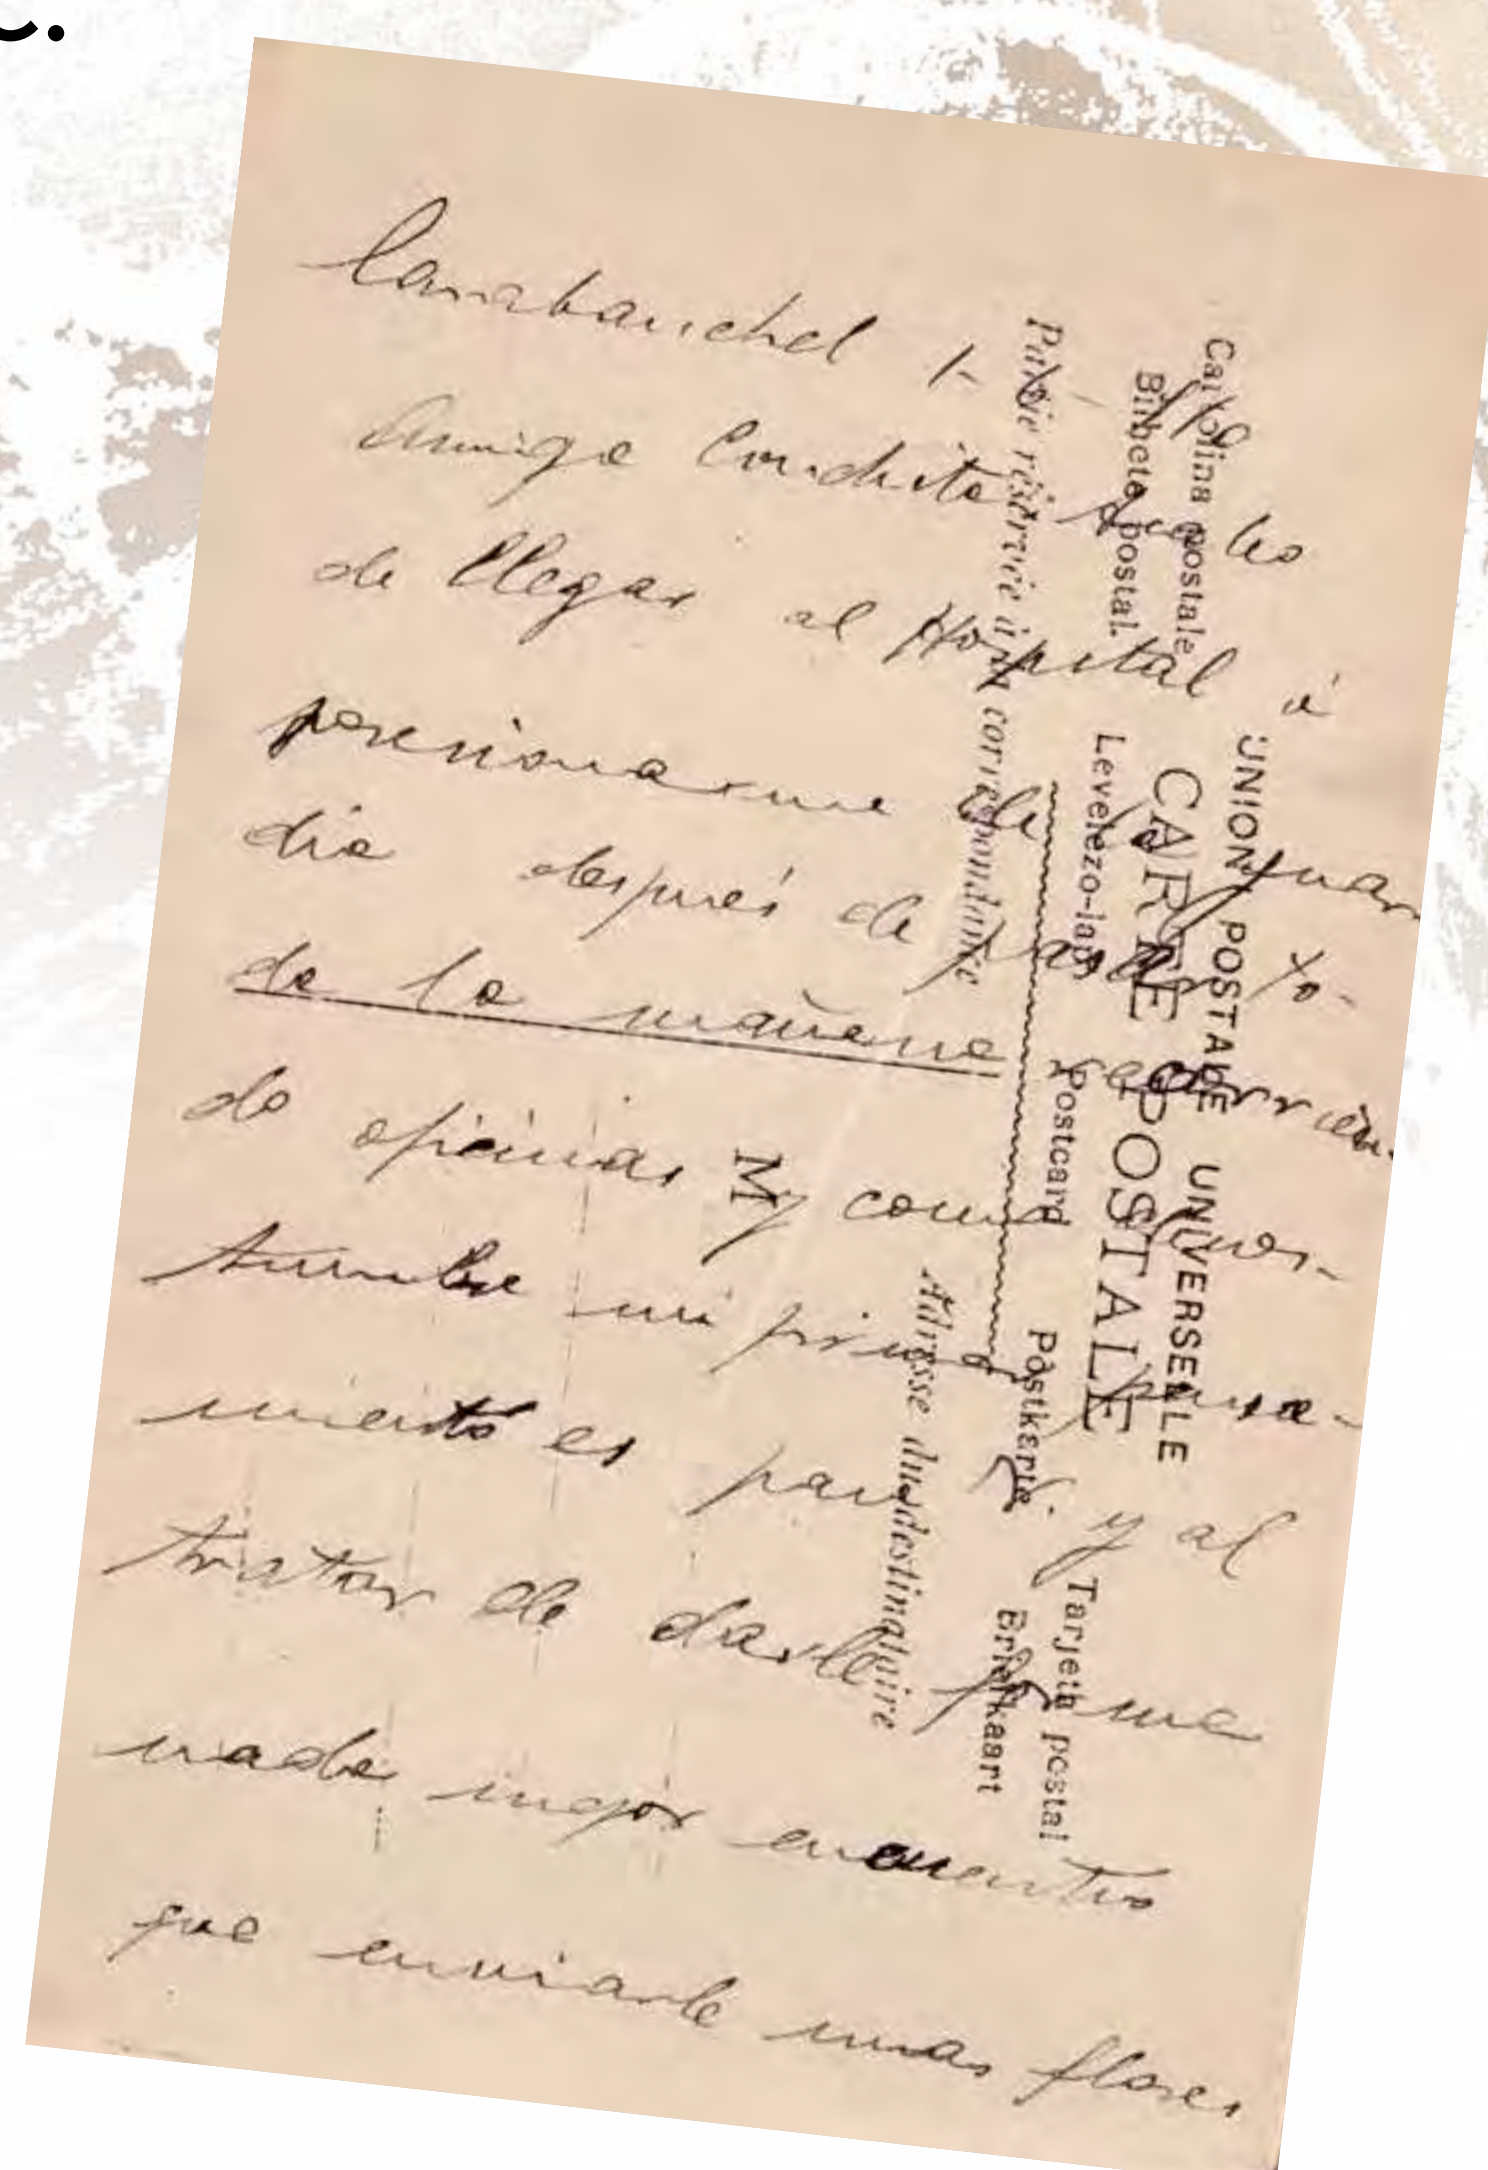 c.
Carabanchel 1-
Amiga Conchita
de llegar al Hospital á
posesionarme de la guar
dia después de pasar to-
da la mañana recorrien-
do oficinas y como cos-
tumbre mi primer pensa-
miento es para V. y al
tratar de darle forma
nada mejor encuentro
que enviarle unas flores
UNION POSTALE UNIVERSELLE
CARTE POSTALE
Cartolina postale
Levelezo-lap
Postcard
Postkarte.
Tarjeta postal
Briefkaart
Partie réservée à la correspondance
Adresse du destinataire
M